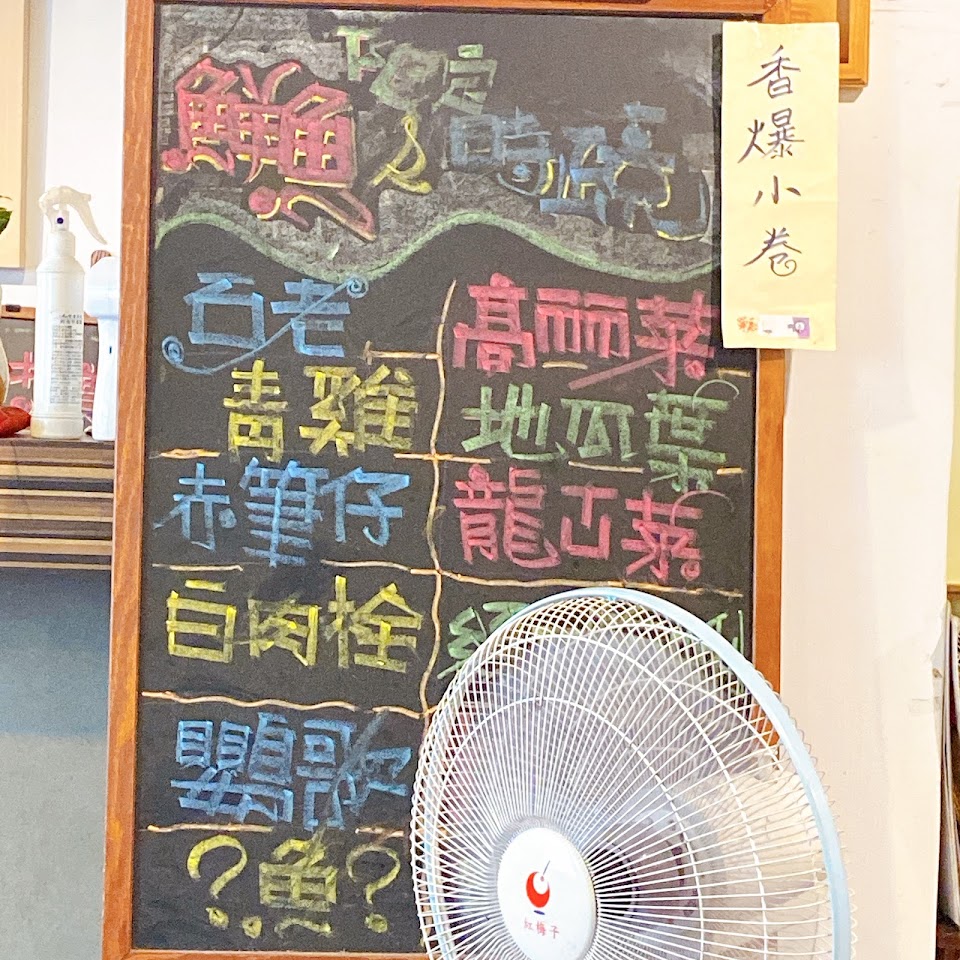 鮮魚 & 時蔬
香爆小卷
石老
高丽菜
青雞
地瓜葉
赤筆仔
龍 菜
白肉栓
鸚歌
?魚?
紅梅子